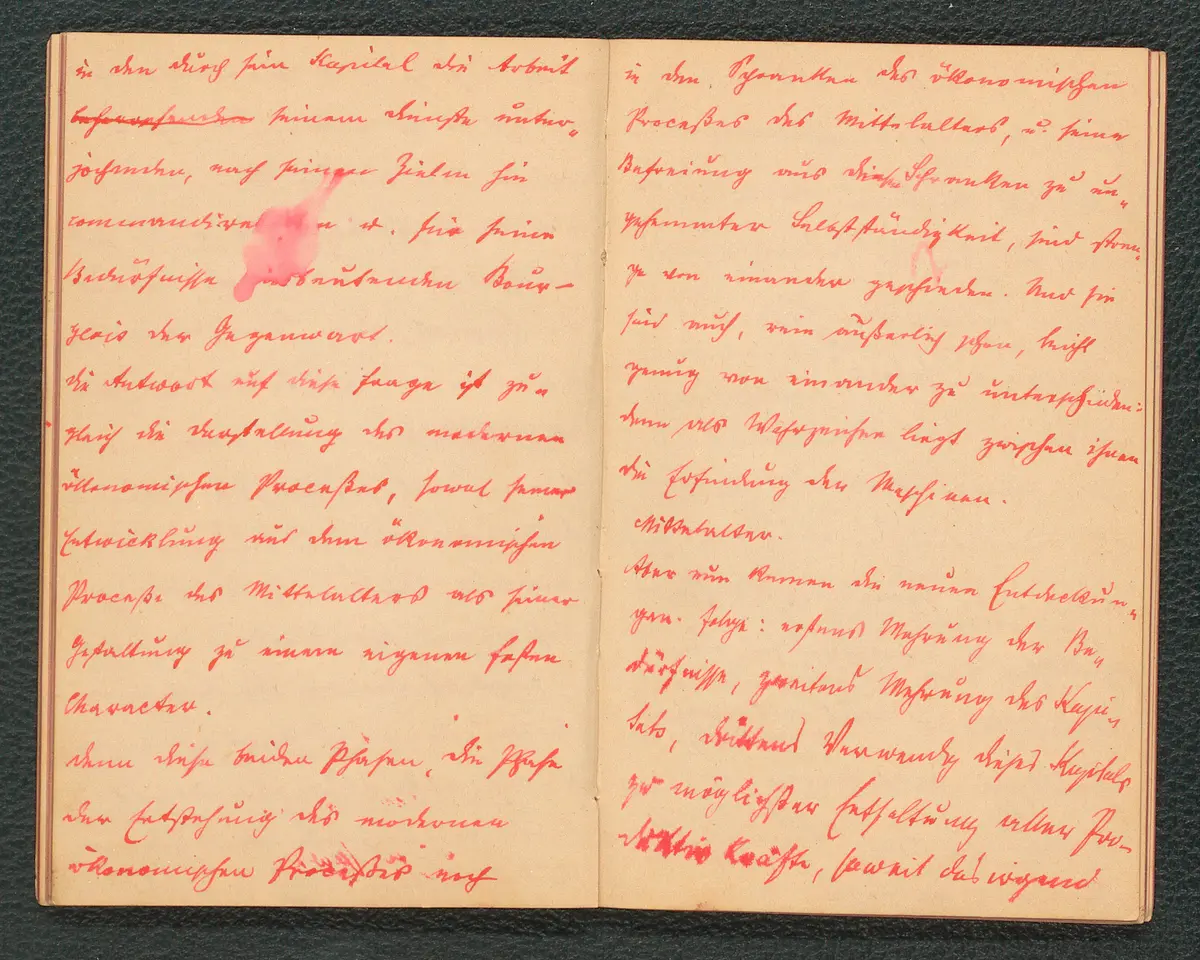 in den durch sein Kapital die Arbeit
beherrschenden seinem Dienste unter-
jochenden, nach seinen Zielen hin
commandirenden u. für seine
Bedürfnisse ausbeutenden Bour-
geois der Gegenwart.
Die Antwort auf diese Frage ist zu-
gleich die Darstellung des modernen
ökonomischen Processes, sowol seiner
Entwicklung aus dem ökonomischen
Processe des Mittelalters als seiner
Gestaltung zu einem eigenen festen
Character.
Denn diese beiden Phasen, die Phase
der Entstehung des modernen
ökonomischen Processes noch
in den Schranken des ökonomischen
Processes des Mittelalters, u. seine
Befreiung aus diesen Schranken zu un-
gehemmter Selbstständigkeit, sind stren-
ge von einander geschieden. Und sie
sind auch, rein äußerlich schon, leicht
genug von einander zu unterscheiden:
denn als Wahrzeichen liegt zwischen ihnen
die Erfindung der Maschinen.
Mittelalter.
Aber nun kamen die neuen Entdeckun-
gen. Folge: erstens Mehrung der Be-
dürfnisse, zweitens Mehrung des Kapi-
tals, drittens Verwendg dieses Kapitals
zu möglichster Entfaltung aller Pro-
duktiv Kräfte, soweit das irgend